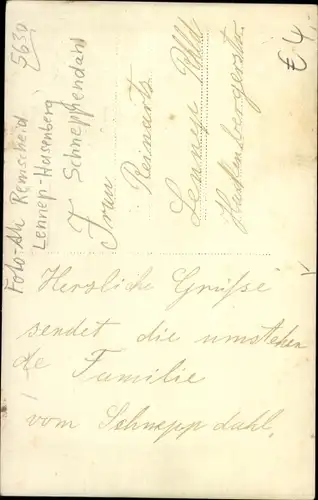 5630
Foto-Ak Remscheid
Lennep-Hasenberg
Schneppendahl
€ 4,
Frau
Reinarts
Lennep Rhld
Hackenbergerstr.
Herzliche Grüße
sendet die umstehen
de Familie
vom Schnepp dahl.